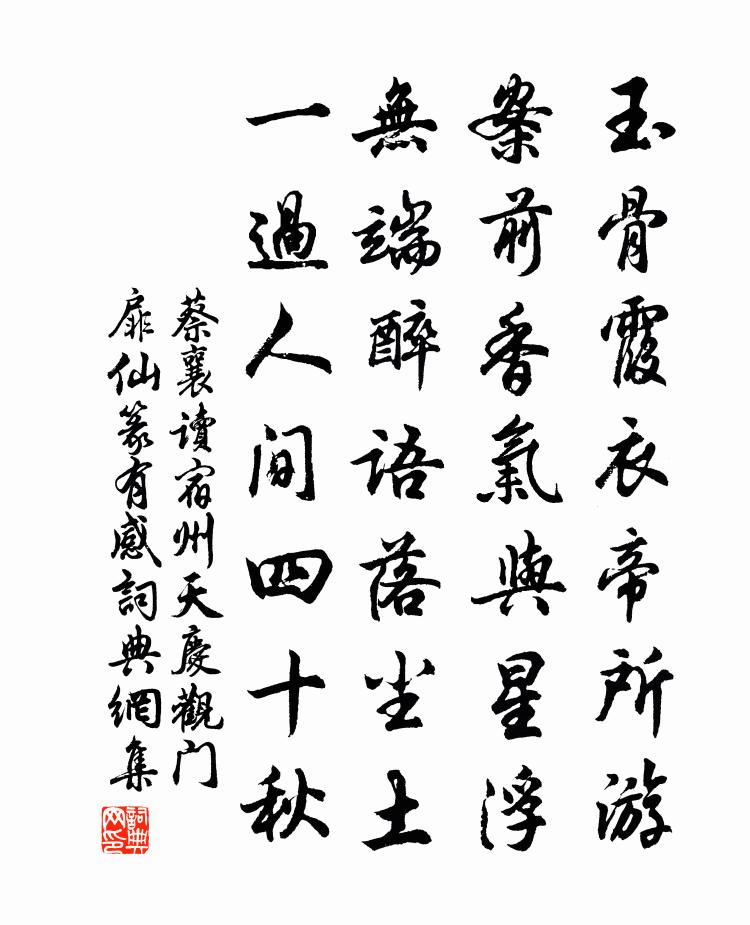 玉骨霞衣帝所游
案前香氣與星浮
無端醉語落尘土
一過人间四十秋
蔡襄讀宿州天慶觀门
扉仙篆有感詞典網集
詞典网印